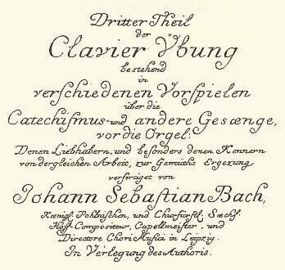 Dritter Theil
der
Clavier Ubung
bestehend
in
verschiedenen Vorspielen
über die
Catechismus- und andere Gesænge,
vor die Orgel:
Denen Liebhabern, und besonders denen Kennern
von dergleichen Arbeit, zur Gemüths Ergezung
verfertiget von
Johann Sebastian Bach,
Kœnigl. Pohlnischen, und Churfürstl. Sæchs.
Hoff-Compositeur, Capellmeister, und
Directore Chori Musici in Leipzig.
In Verlegung des Authoris.